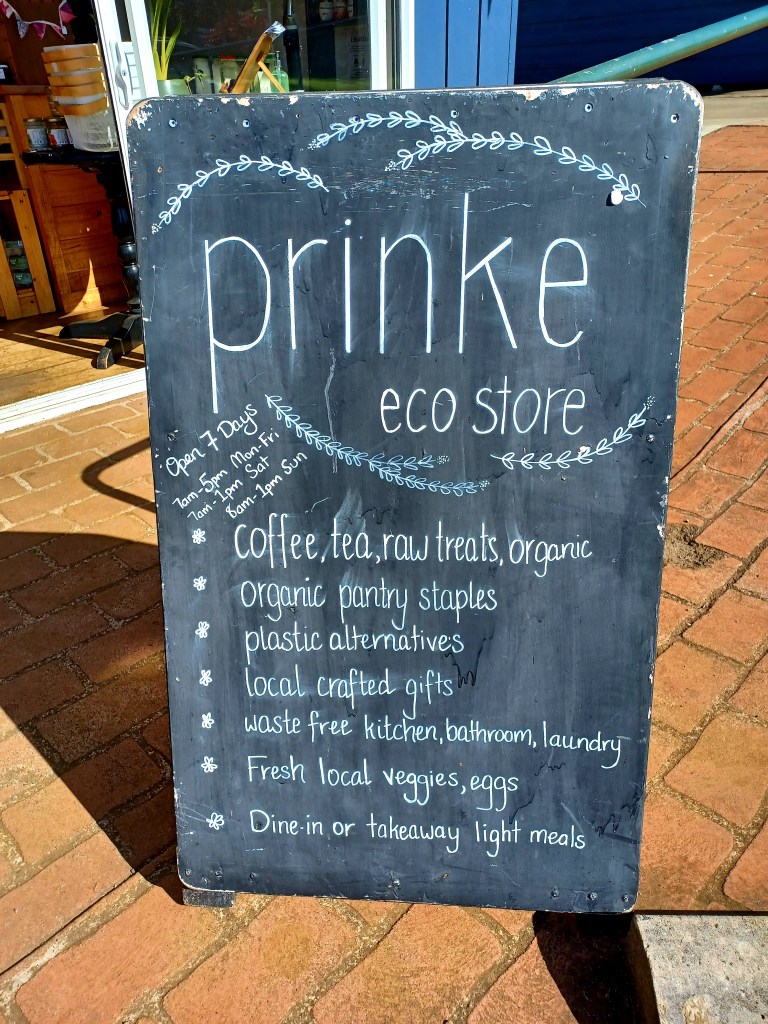 prinke
eco store
Open 7 Days
7am-5pm Mon-Fri
7am-1pm Sat
8am-1pm Sun
coffee, tea, raw treats, organic
organic pantry staples
plastic alternatives
local crafted gifts
waste free kitchen, bathroom, laundry
Fresh local veggies, eggs
Dine-in or takeaway light meals